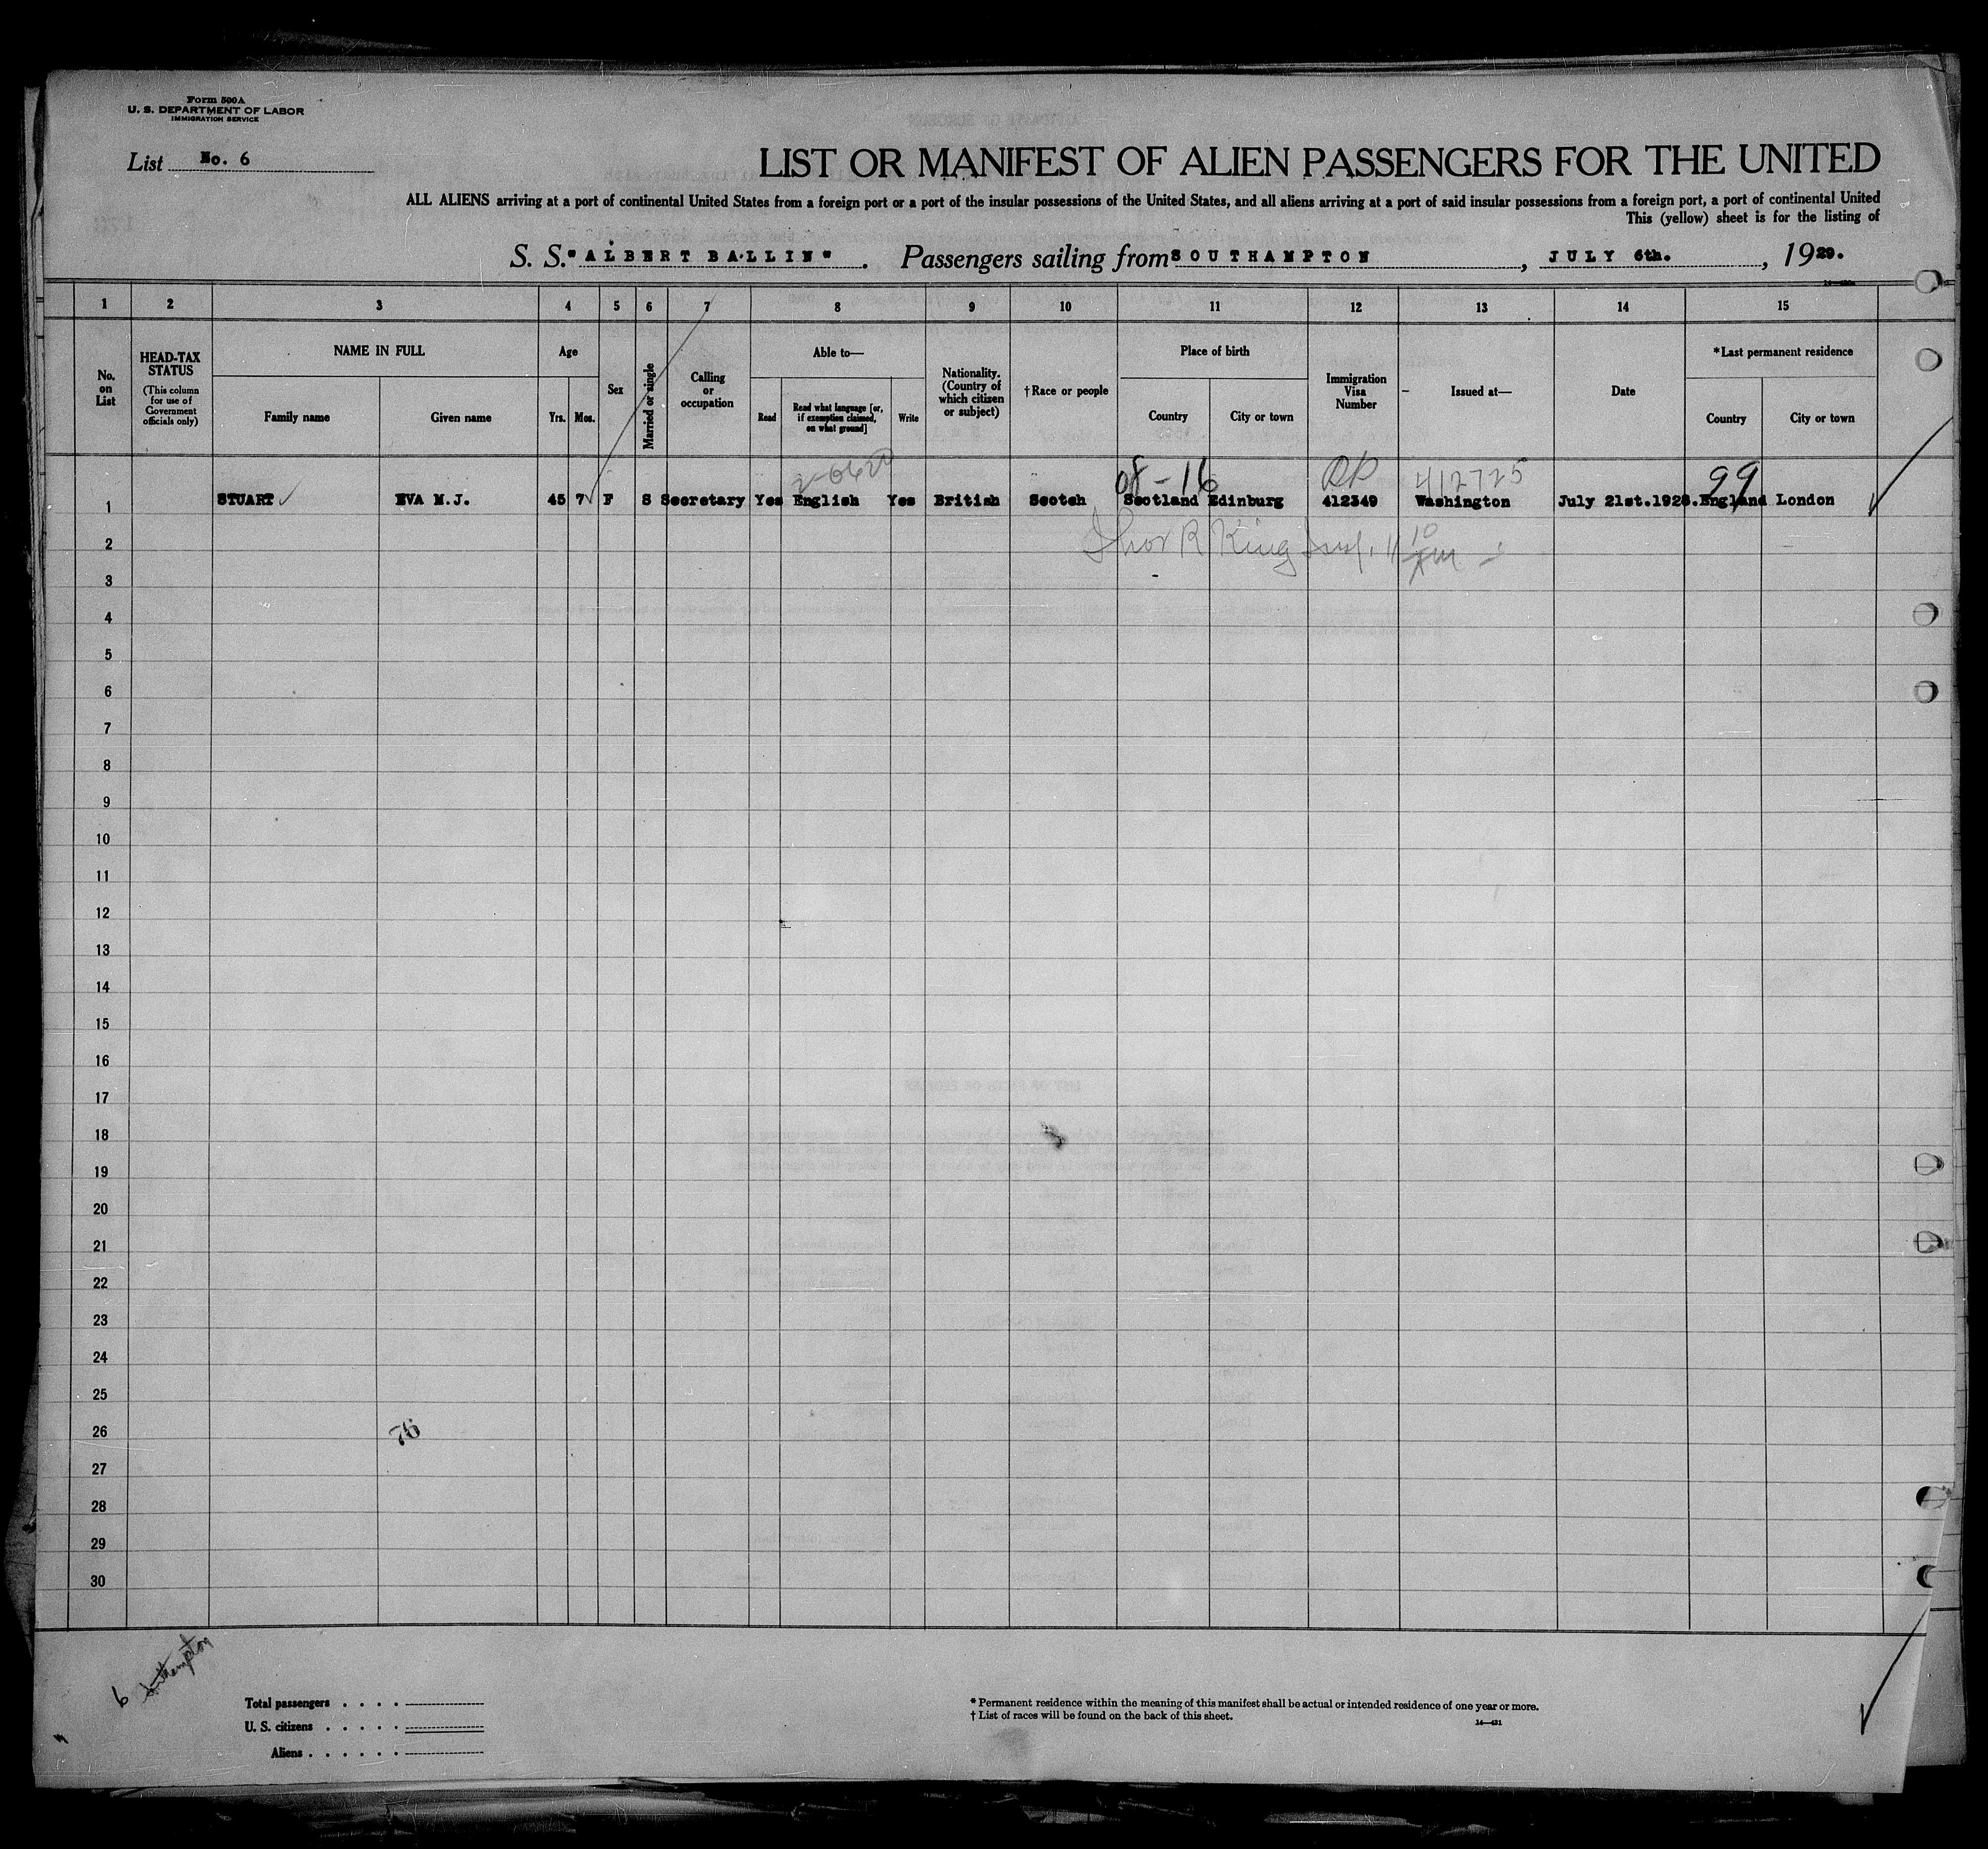 Form 500A
U. S. DEPARTMENT OF LABOR
IMMIGRATION SERVICE
List No. 6
LIST OR MANIFEST OF ALIEN PASSENGERS FOR THE UNITED
ALL ALIENS arriving at a port of continental United States from a foreign port or a port of the insular possessions of the United States, and all aliens arriving at a port of said insular possessions from a foreign port, a port of continental United
This (yellow) sheet is for the listing of
S. S. "ALBERT BALLIN". Passengers sailing from SOUTHAMPTON, JULY 6th., 1929.
1 2 3 4 5 6 7 8 9 10 11 12 13 14 15
No. on List
HEAD-TAX STATUS
(This column for use of Government officials only)
NAME IN FULL
Family name
Given name
Age
Yrs.
Mos.
Sex
Married or single
Calling or occupation
Able to—
Read
Read what language [or, if exemption claimed, on what ground]
Write
Nationality. (Country of which citizen or subject)
†Race or people
Place of birth
Country
City or town
Immigration Visa Number
Issued at—
Date
*Last permanent residence
Country
City or town
08-16 412725 99
1 STUART EVA M.J. 45 7 F S Secretary Yes English Yes British Scotch Scotland Edinburg 412349 Washington July 21st.1928. England London
2
3
4
5
6
7
8
9
10
11
12
13
14
15
16
17
18
19
20
21
22
23
24
25
26
76
27
28
29
30
6 Southampton
Total passengers . . . .
U. S. citizens . . . . .
Aliens . . . . . .
* Permanent residence within the meaning of this manifest shall be actual or intended residence of one year or more.
† List of races will be found on the back of this sheet.
14—431